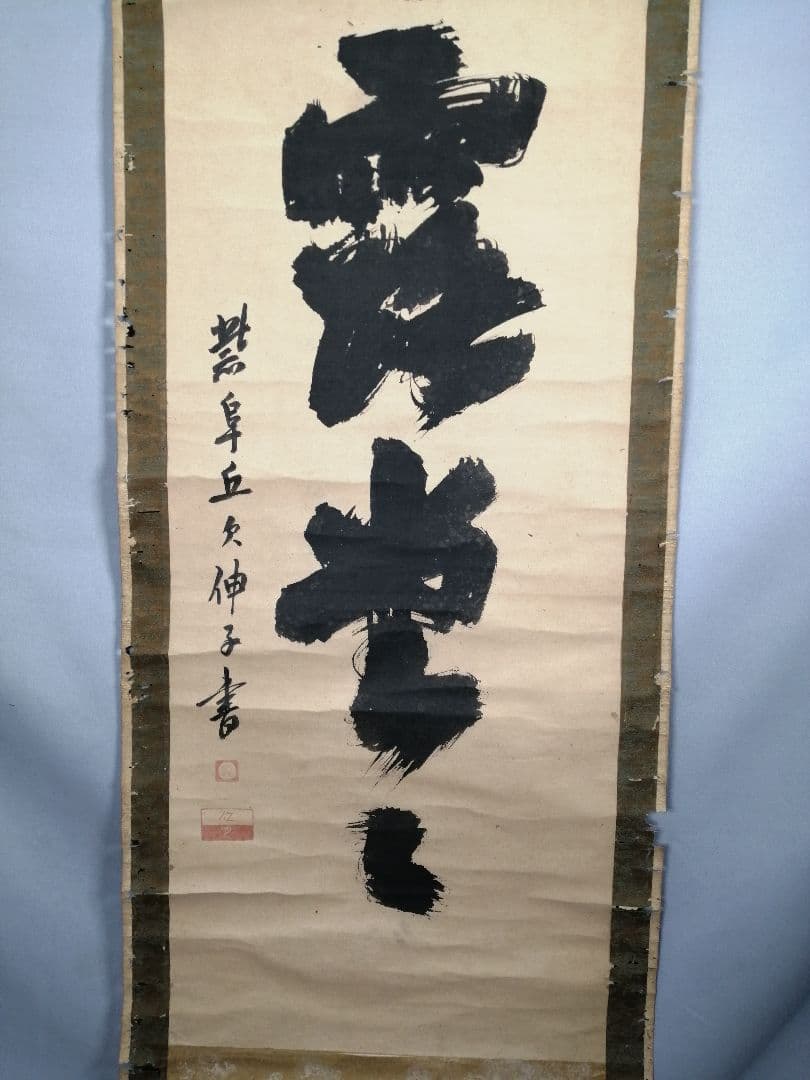 露堂々
紫阜丘欠伸子書